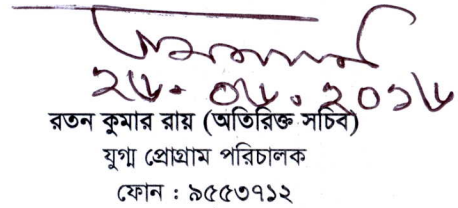 ২৮.০৮.২০১৮
রতন কুমার রায় (অতিরিক্ত সচিব)
যুগ্ম প্রোগ্রাম পরিচালক
ফোন : ৯৫৫৩৭১২